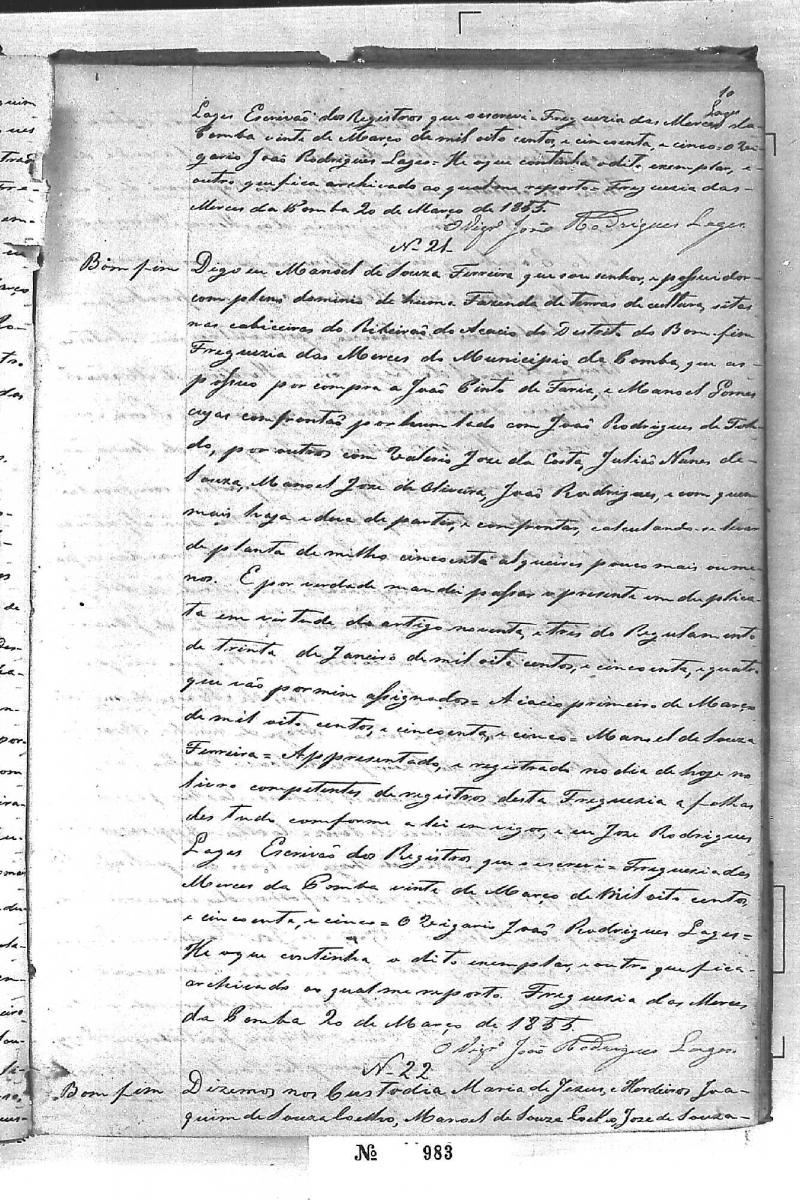 10
Lages
Lages Escrivaõ dos Registros que o escrevi = Freguezia das Merces da
Pomba vinte de Março de mil oito centos, e cincoenta, e cinco = O Vi-
gario Joaõ Rodrigues Lages = He o que continha o dito exemplar, e
outro que fica archivado ao qual me reporto = Freguezia das
Merces da Pomba 20 de Março de 1855.
O Vigrº Joaõ Rodrigues Lages
N. 21
Bom fim
Digo eu Manoel de Souza Ferreira, que sou senhor, e possuidor
com pleno dominio de huma Fazenda de terras de cultura, sitas
nas cabiceiras do Ribeiraõ do Acacio do Destrito do Bom fim
Freguezia das Merces do Municipio da Pomba, que as
possuo por compra a Joaõ Pinto de Faria, e Manoel Gomes
cujas confrontaõ por hum lado com Joaõ Rodrigues de Tole-
do, por outros com Valerio Joze da Costa, Juliaõ Nunes de
Souza, Manoel Joze de Oliveira, Joaõ Rodrigues, e com quem
mais haja e deva de partir, e confrontar, calculando-se levar
de planta de milho cincoenta alqueires pouco mais ou me-
nos. E por verdade mandei passar o presente em duplica-
ta em virtude do artigo noventa, e tres do Regulamento
de trinta de Janeiro de mil oito centos, e cincoenta, e quatro
que vaõ por mim assignados = Acacio primeiro de Março
de mil oito centos, e cincoenta, e cinco = Manoel de Souza
Ferreira = Appresentado, e registrado no dia de hoje no
livro competentes de registros desta Freguezia a folhas
des tudo comforme a lei em vigor, e eu Joze Rodrigues
Lages Escrivaõ dos Registros, que o escrevi = Freguezia das
Merces da Pomba vinte de Março de mil oito centos,
e cincoenta, e cinco = O Vigario Joaõ Rodrigues Lages =
He o que continha o dito exemplar, e outro que fica
archivado ao qual me reporto. Freguezia das Merces
da Pomba 20 de Março de 1855.
O Vigrº Joaõ Rodrigues Lages
N. 22
Bom fim
Dizemos nos Custodia Maria de Jezus, e Herdeiros Joa-
quim de Souza Coelho, Manoel de Souza Coelho, Joze de Souza
Nº 983